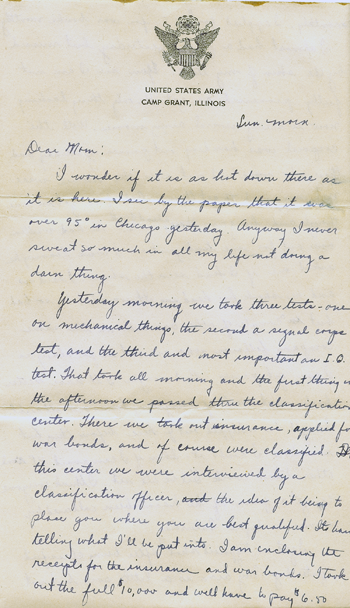 UNITED STATES ARMY
CAMP GRANT, ILLINOIS
Sun. morn.
Dear Mom:
I wonder if it is as hot down there as
it is here. I see by the paper that it was
over 95° in Chicago yesterday. Anyway I never
sweat so much in all my life not doing a
darn thing.
Yesterday morning we took three tests - one
on mechanical things, the second a signal corps
test, and the third and most important an I.Q.
test. That took all morning and the first thing
the afternoon we passed thru the classification
center. There we took out insurance, applied fo
war bonds, and of course were classified.
this center we were interviewed by a
classification officer, and the idea of it being to
place you where you are best qualified. Its
telling what I'll be put into. I am enclosing the
receipts for the insurance and war bonds. I took
out the full $10,000 and will have to pay $6.50